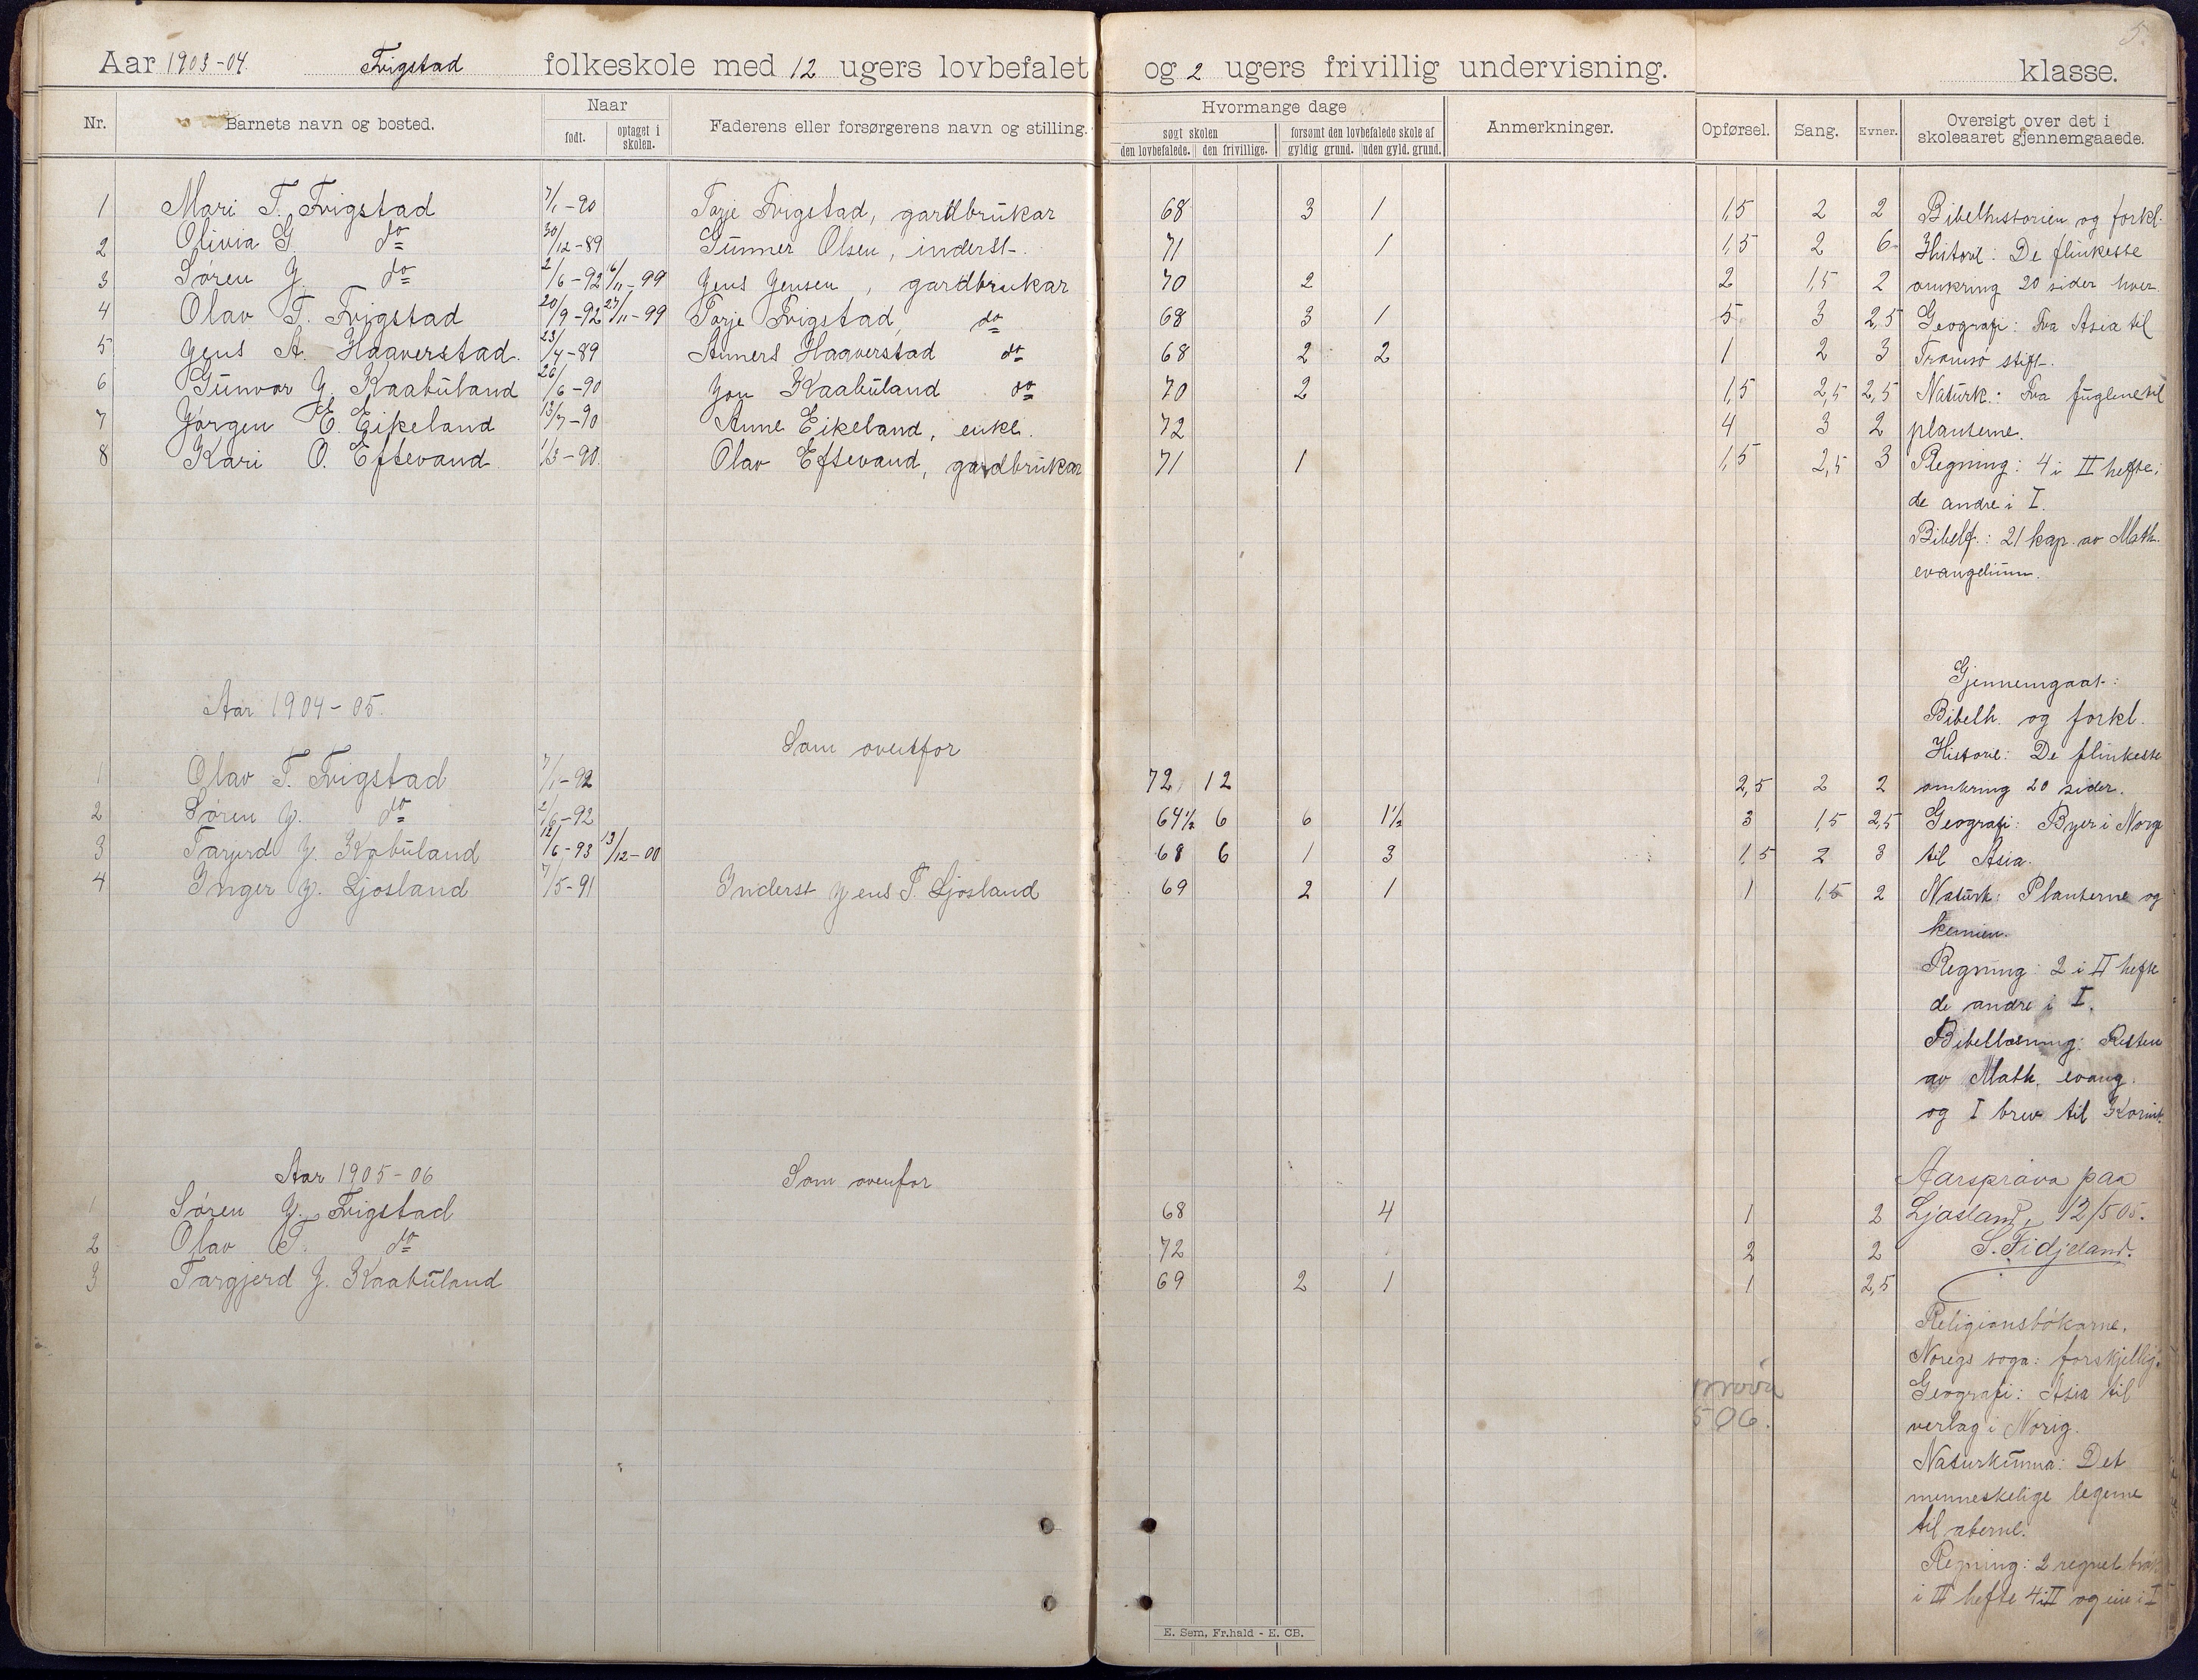 5.
Aar 1903-04. Frigstad folkeskole med 12 ugers lovbefalet og 2 ugers frivillig undervisning. klasse.
Nr. Barnets navn og bosted. Naar født. optaget i skolen. Faderens eller forsørgerens navn og stilling. Hvormange dage søgt skolen den lovbefalede. den frivillige. forsømt den lovbefalede skole af gyldig grund. uden gyld. grund. Anmerkninger. Opførsel. Sang. Evner. Oversigt over det i skoleaaret gjennemgaaede.
1 Mari T. Frigstad 7/1-90 Torje Frigstad, gardbrukar 68 3 1 1,5 2 2 Bibelhistorien og forkl.
2 Olivia G. do 30/12-89 Gunner Olsen, inderst. 71 1 1,5 2 6 Historie: De flinkeste
3 Søren J. do 2/6-92 6/11-99 Jens Jensen, gardbrukar 70 2 2 1,5 2 omkring 20 sider hver.
4 Olav T. Frigstad 20/9-92 27/11-99 Torje Frigstad, do 68 3 1 5 3 2,5 Geografi: Fra Asia til
5 Jens A. Haaverstad. 23/4-89 Anners Haaverstad do 68 2 2 1 2 3 Tromsø stift.
6 Gunvor J. Kaabuland 26/6-90 Jon Kaabuland do 70 2 1,5 2,5 2,5 Naturk.: Fra fuglene til
7 Jørgen E. Eikeland 13/7-90 Anne Eikeland, enke. 72 4 3 2 planterne.
8 Kari O. Eftevand 1/3-90 Olav Eftevand, gardbrukar 71 1 1,5 2,5 3 Regning: 4 i II hefte;
de andre i I.
Bibell.: 21 kap. av Math.
evangelium.
Gjennemgaat:
Aar 1904-05.
Bibelh. og forkl.
Som ovenfor
Historie: De flinkeste
1 Olav T. Frigstad 7/1-92 72 12 2,5 2 2 omkring 20 sider.
2 Søren J. do 2/6-92 64½ 6 6 1½ 3 1,5 2,5 Geografi: Byer i Norge
3 Tarjerd J. Kabuland 12/6-93 13/12-00 68 6 1 3 1,5 2 3 til Asia.
4 Inger J. Ljosland 7/5-91 Inderst Jens T. Ljosland 69 2 1 1 1,5 2 Naturk: Planterne og
kemien.
Regning: 2 i II hefte
de andre i I.
Bibellæsning: Resten
av Math. evang.
og I brev til Korint.
Aar 1905-06 Som ovenfor Aarsprøva paa
1 Søren J. Frigstad 68 4 1 2 Ljosland, 12/5 05.
2 Olav T. do 72 2 2 S. Fidjeland.
3 Targjerd J. Kaabuland 69 2 1 1 2,5
Religionsbøkarne.
Noregs soga: forskjellig.
Geografi: Asia til
verlag i Norig.
506.
Naturkunna: Det
menneskelige legeme
til aberne.
Regning: 2 regnet
i III hefte 4 i II og ein i I
E. Sem, Fr.hald - E. CB.